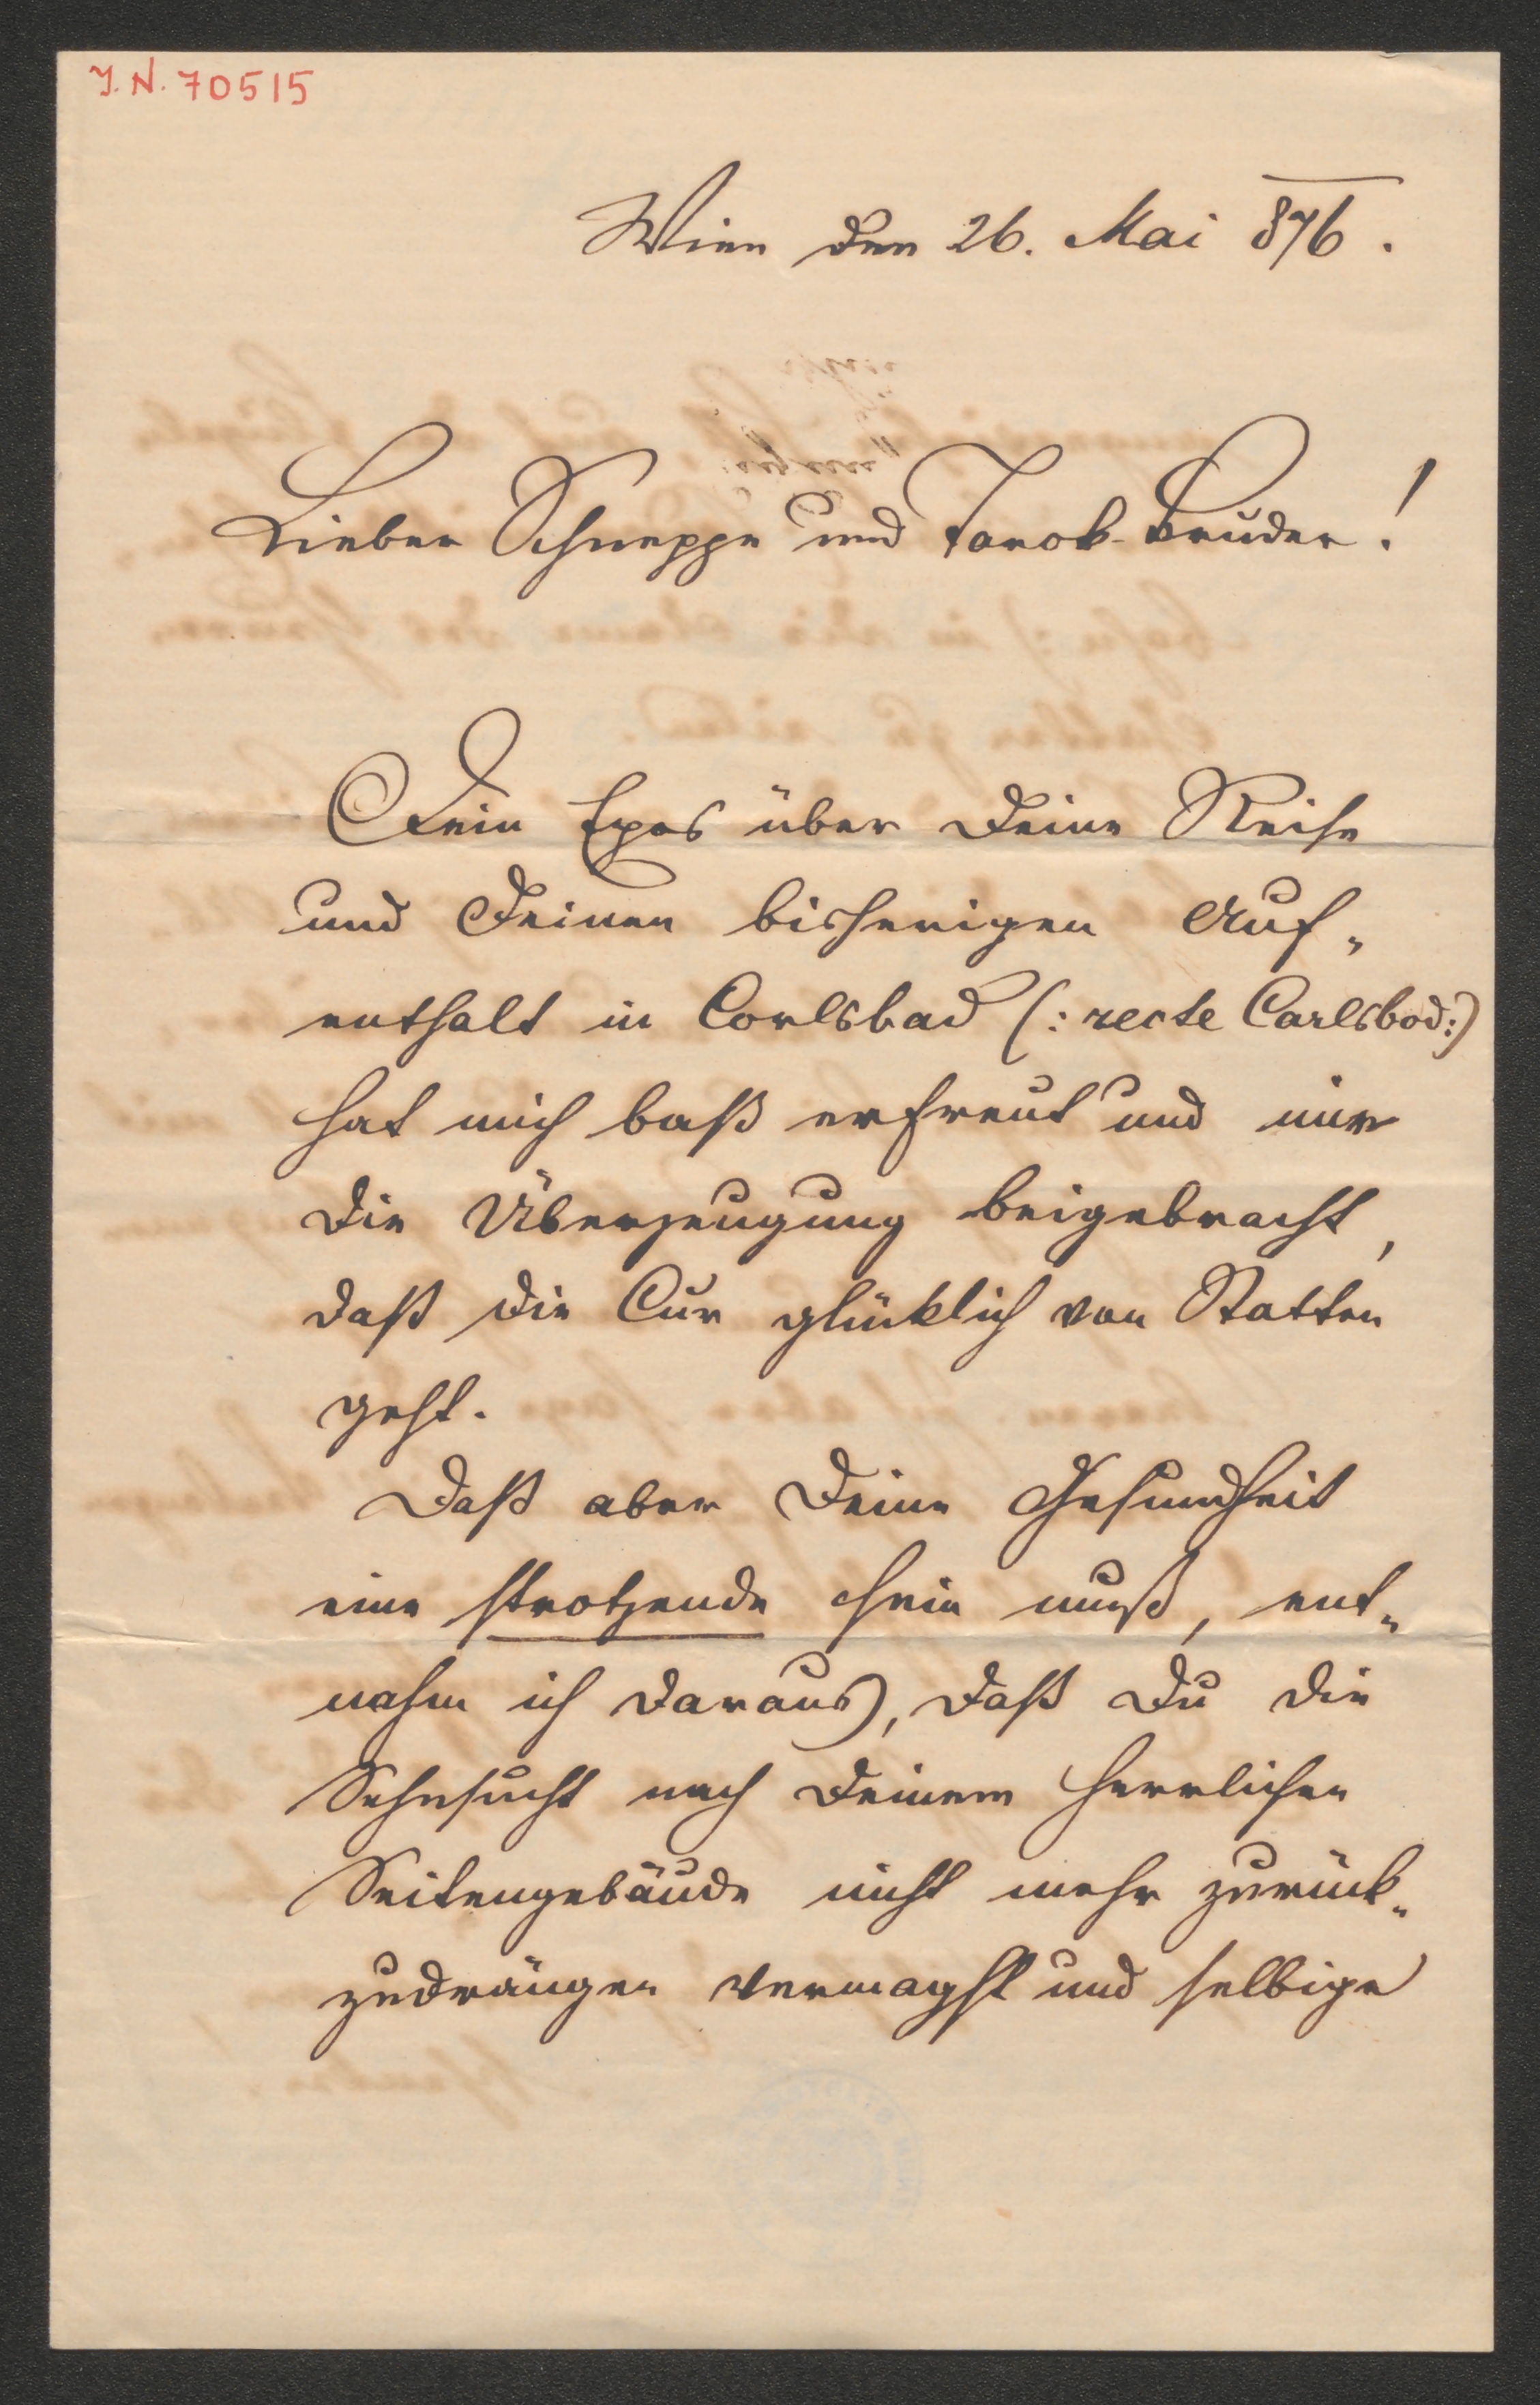 J. N. 70515
Wien den 26. Mai 876.
Lieber Schneppe und Tarok-Bruder!
Dein Epos über Deine Reise
und Deinen bisherigen Auf„
enthalt in Corlsbad (: recte Carlsbod :)
hat mich baß erfreut und mir
die Überzeugung beigebracht,
daß die Cur glücklich von Statten
geht.
Daß aber Deine Gesundheit
eine strotzende sein muß, ent„
nahm ich daraus, daß Du die
Sehnsucht nach Deinem herrlichen
Seitengebäude nicht mehr zurück„
zudrängen vermagst und selbige